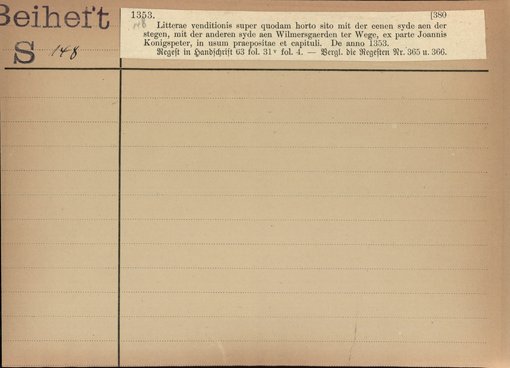 Beiheft
S 148
1353. [380
148
Litterae venditionis super quodam horto sito mit der eenen syde aen der
stegen, mit der anderen syde aen Wilmersgaerden ter Wege, ex parte Joannis
Konigspeter, in usum praepositae et capituli. De anno 1353.
Regest in Handschrift 63 fol. 31v fol. 4. — Vergl. die Regesten Nr. 365 u. 366.